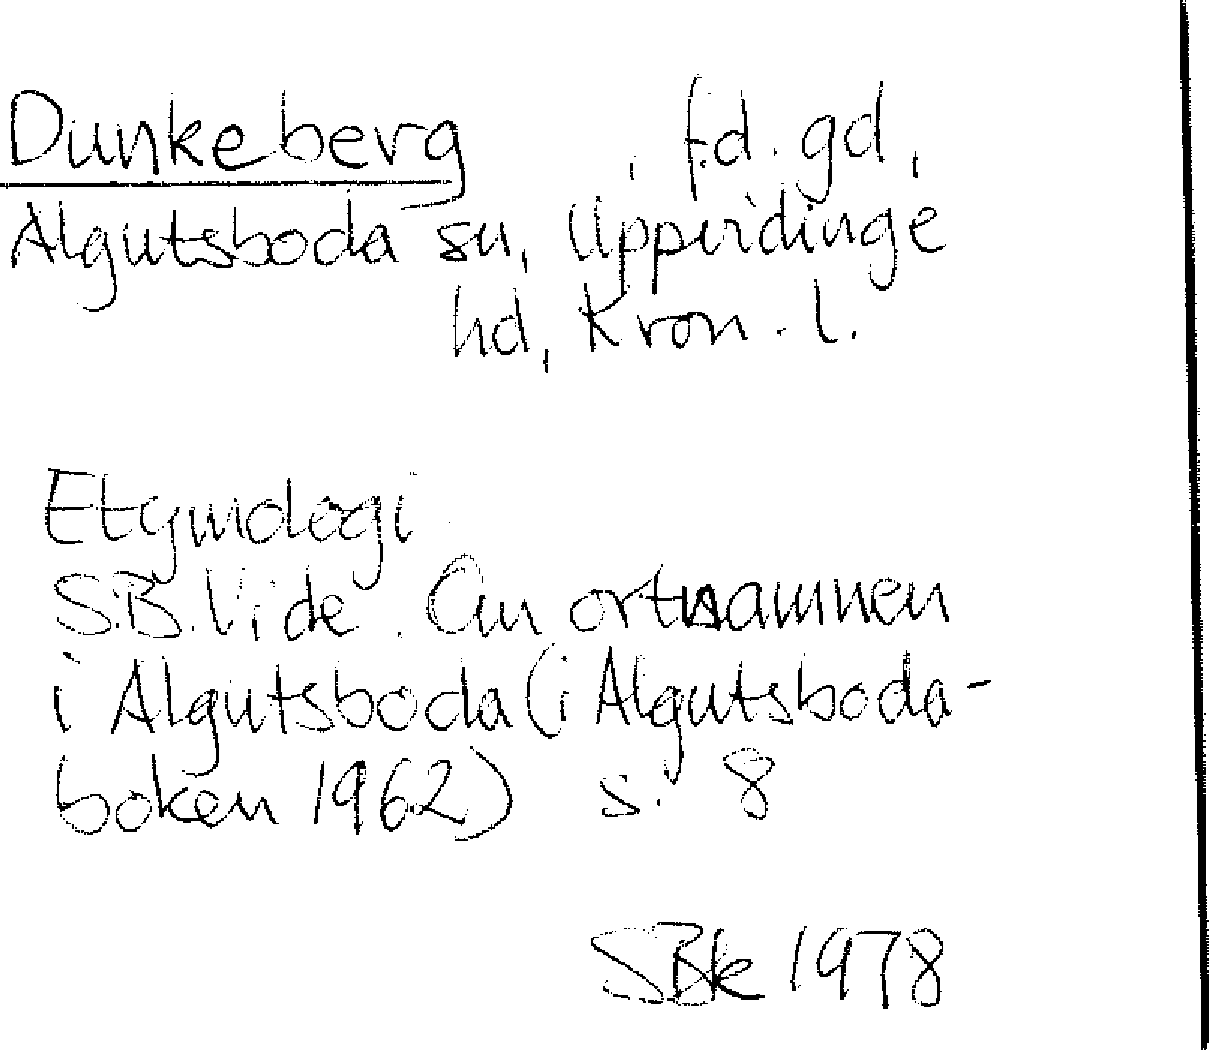 Dunkeberg , f.d. gd,
Algutsboda sn, Uppvidinge
hd, Kron. l.
Etymologi
S.B. Vide. Om ortnamnen
i Algutsboda (i Algutsboda-
boken 1962) s. 8
SBk 1978